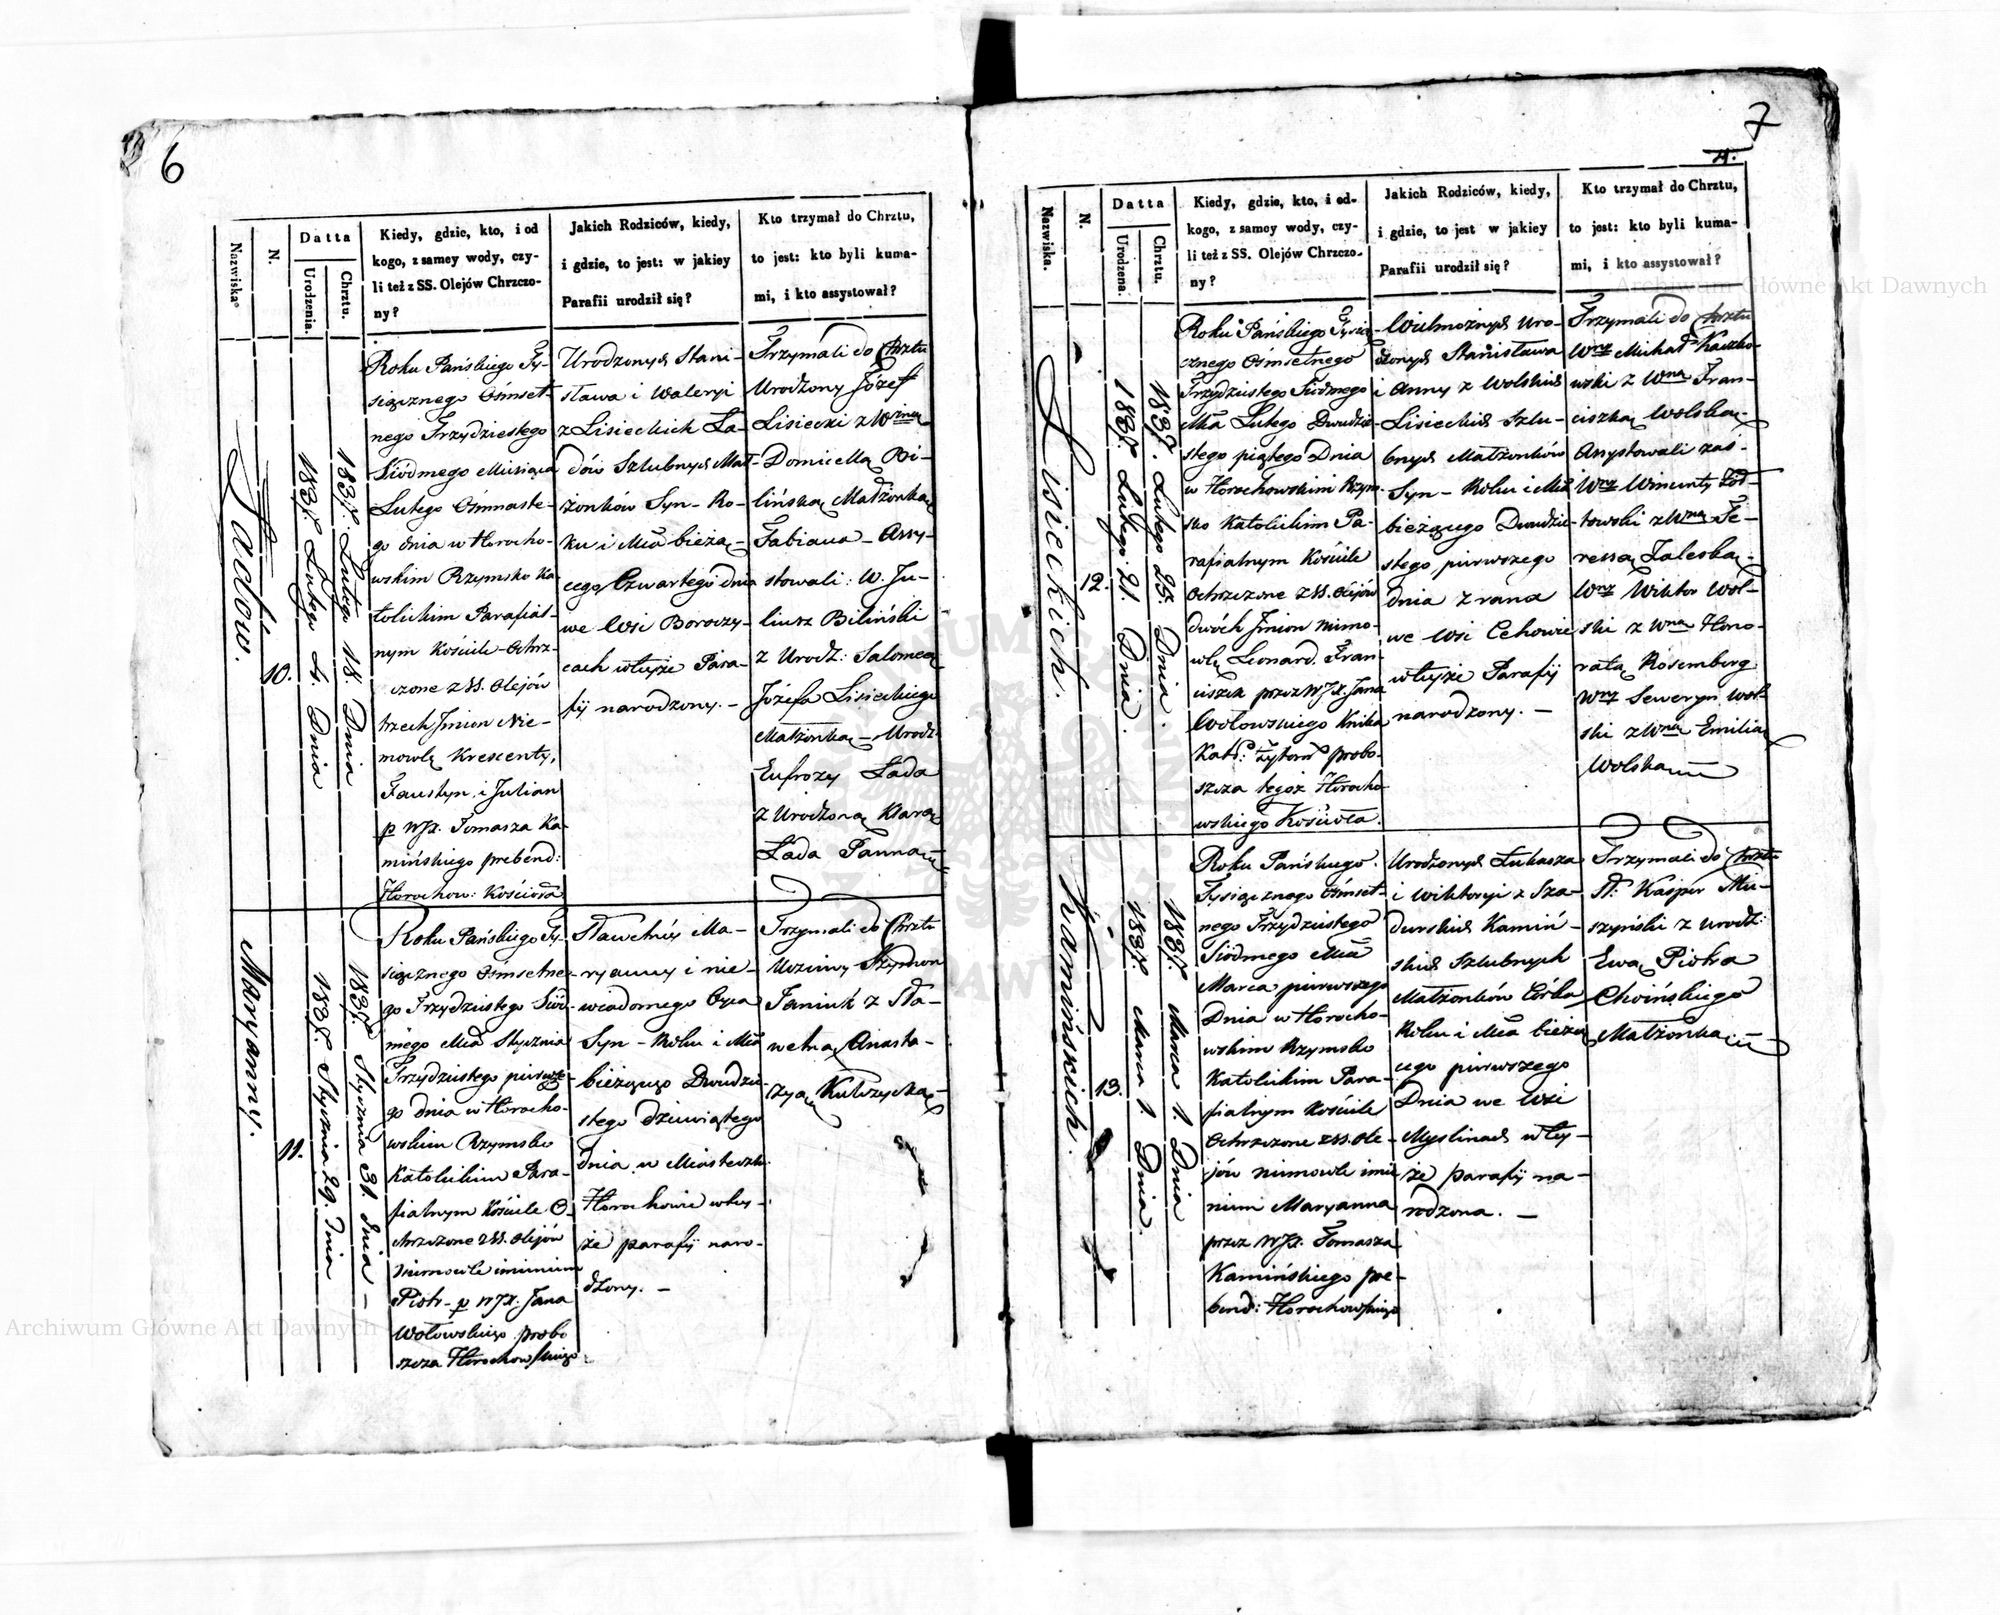 6
Nazwiska
N.
Datta
Urodzenia.
Chrztu.
Kiedy, gdzie, kto, i od
kogo, z samey wody, czy-
li też z SS. Olejów Chrzczo-
ny?
Jakich Rodziców, kiedy,
i gdzie, to jest: w jakiey
Parafii urodził się?
Kto trzymał do Chrztu,
to jest: kto byli kuma-
mi, i kto assystował?
Ładow.
10.
1837. Lutego 4. Dnia
1837. Lutego 18. Dnia
Roku Pańskiego Ty-
siącznego Ośmset-
nego Trzydziestego
Siódmego Miesiąca
Lutego Ośmnaste-
go dnia w Horocho-
wskim Rzymsko Ka
tolickim Parafial-
nym Kościele Ochrz-
czone z SS. Olejów
trzech Jmion Nie-
mowlę Krescenty,
Faustyn, i Julian
p WJX. Tomasza Ka-
mińskiego prebend:
Horochow: Kościoła
Urodzonych Stani-
sława i Waleryi
z Lisieckich Ła-
dów Szlubnych Mał-
żonków Syn - Ro-
ku i Mca bieżą-
cego Czwartego dnia
we Wsi Boroczy-
cach w tujże Para-
fij narodzony. -
Trzymali do Chrztu
Urodzony Józef
Lisiecki z Wżną
Domicellą Bi-
lińską Małżonką
Fabiana - Assy-
stowali: W. Ju-
liusz Biliński
z Urodz: Salomeą
Józefa Lisieckiego
Małżonką - Urodz:
Eufrozy Łada
z Urodzoną Klarą
Łada Panną
Maryanny.
11.
1837. Stycznia 29. Dnia
1837. Stycznia 31. dnia -
Roku Pańskiego Ty-
siącznego Ośmsetne-
go Trzydziestego Siód-
mego Mca Stycznia
Trzydziestego pierwsze-
go dnia w Horocho-
wskim Rzymsko
Katolickim Para-
fialnym Kościele O-
chrzczone z SS. Olejów
niemowle imieniem
Piotr - p WJX. Jana
Wołowskiego probo
szcza Horochowskiego
Sławetnéy Ma-
ryanny i nie-
wiadomego Oyca
Syn - Roku i Mca
bieżącego Dwudzie-
stego dziewiątego
Dnia w Miasteczku
Horochowie w tey-
że parafij naro-
dzony. -
Trzymali do Chrztu
Uczciwy Szymon
Janiuk z Sła-
wetną Anasta-
zyą Kulczycką -
7
Nazwiska.
N.
Datta
Urodzena.
Chrztu.
Kiedy, gdzie, kto, i od-
kogo, z samey wody, czy-
li też z SS. Olejów Chrzczo-
ny?
Jakich Rodziców, kiedy,
i gdzie, to jest w jakiey
Parafii urodził się?
Kto trzymał do Chrztu,
to jest: kto byli kuma-
mi, i kto assystował?
Lisieckich.
12.
1837. Lutego 21. Dnia
1837. Lutego 25. Dnia.
Roku Pańskiego Tysią-
cznego Ośmsetnego
Trzydziestego Siódmego
Mca Lutego Dwudzie-
stego piątego Dnia
w Horochowskim Rzym-
sko Katolickim Pa-
rafialnym Kościele
Ochrzczone z SS. Olejów
dwóch Jmion niemo-
wlę Leonard. Fran-
ciszek przez WJX. Jana
Wołowskiego Knika
Kate: Żytom probo-
szcza tegoż Horocho-
wskiego Kościoła.
Wielmożnych Uro-
dzonych Stanisława
i Anny z Wolskich
Lisieckich Szlu-
bnych Małżonków
Syn - Roku i Mca
bieżącego Dwudzie-
stego pierwszego
dnia z rána
we Wsi Cehowie
w tujże Parafij
narodzony. -
Trzymali do Chrztu
Wny Michał Kaczko-
wski z Wną Fran-
ciszką Wolską -
Assystowali zaś
Wny Wincenty Żół-
towski z Wną Te-
ressą Zaleską -
Wny Wiktor Wol-
ski z Wną Hono-
ratą Rosemberg
Wny Seweryn Wol-
ski z Wną Emilią
Wolską
Kamińskich.
13.
1837. Marca 1. Dnia.
1837. Marca 1. Dnia
Roku Pańskiego.
Tysiącznego Ośmset-
nego Trzydziestego
Siódmego Mca
Marca pierwszego
Dnia w Horocho-
wskim Rzymsko
Katolickim Para-
fialnym Kościele
Ochrzczone z SS. Ole-
jów niemowle imie
niem Maryanna
przez WJX. Tomasza
Kamińskiego pre-
bend: Horochowskiego
Urodzonych Łukasza
i Wiktoryi z Sza-
durskich Kamiń-
skich Szlubnych
Małżonków Córka
Roku i Mca bieżą
cego pierwszego
Dnia we Wsi
Myslinach w tey-
że parafij na-
rodzona. -
Trzymali do Chrztu
Kasper Mie-
szyński z Urodz:
Ewą Piotra
Choińskiego
Małżonką
Archiwum Główne Akt Dawnych
Archiwum Główne Akt Dawnych